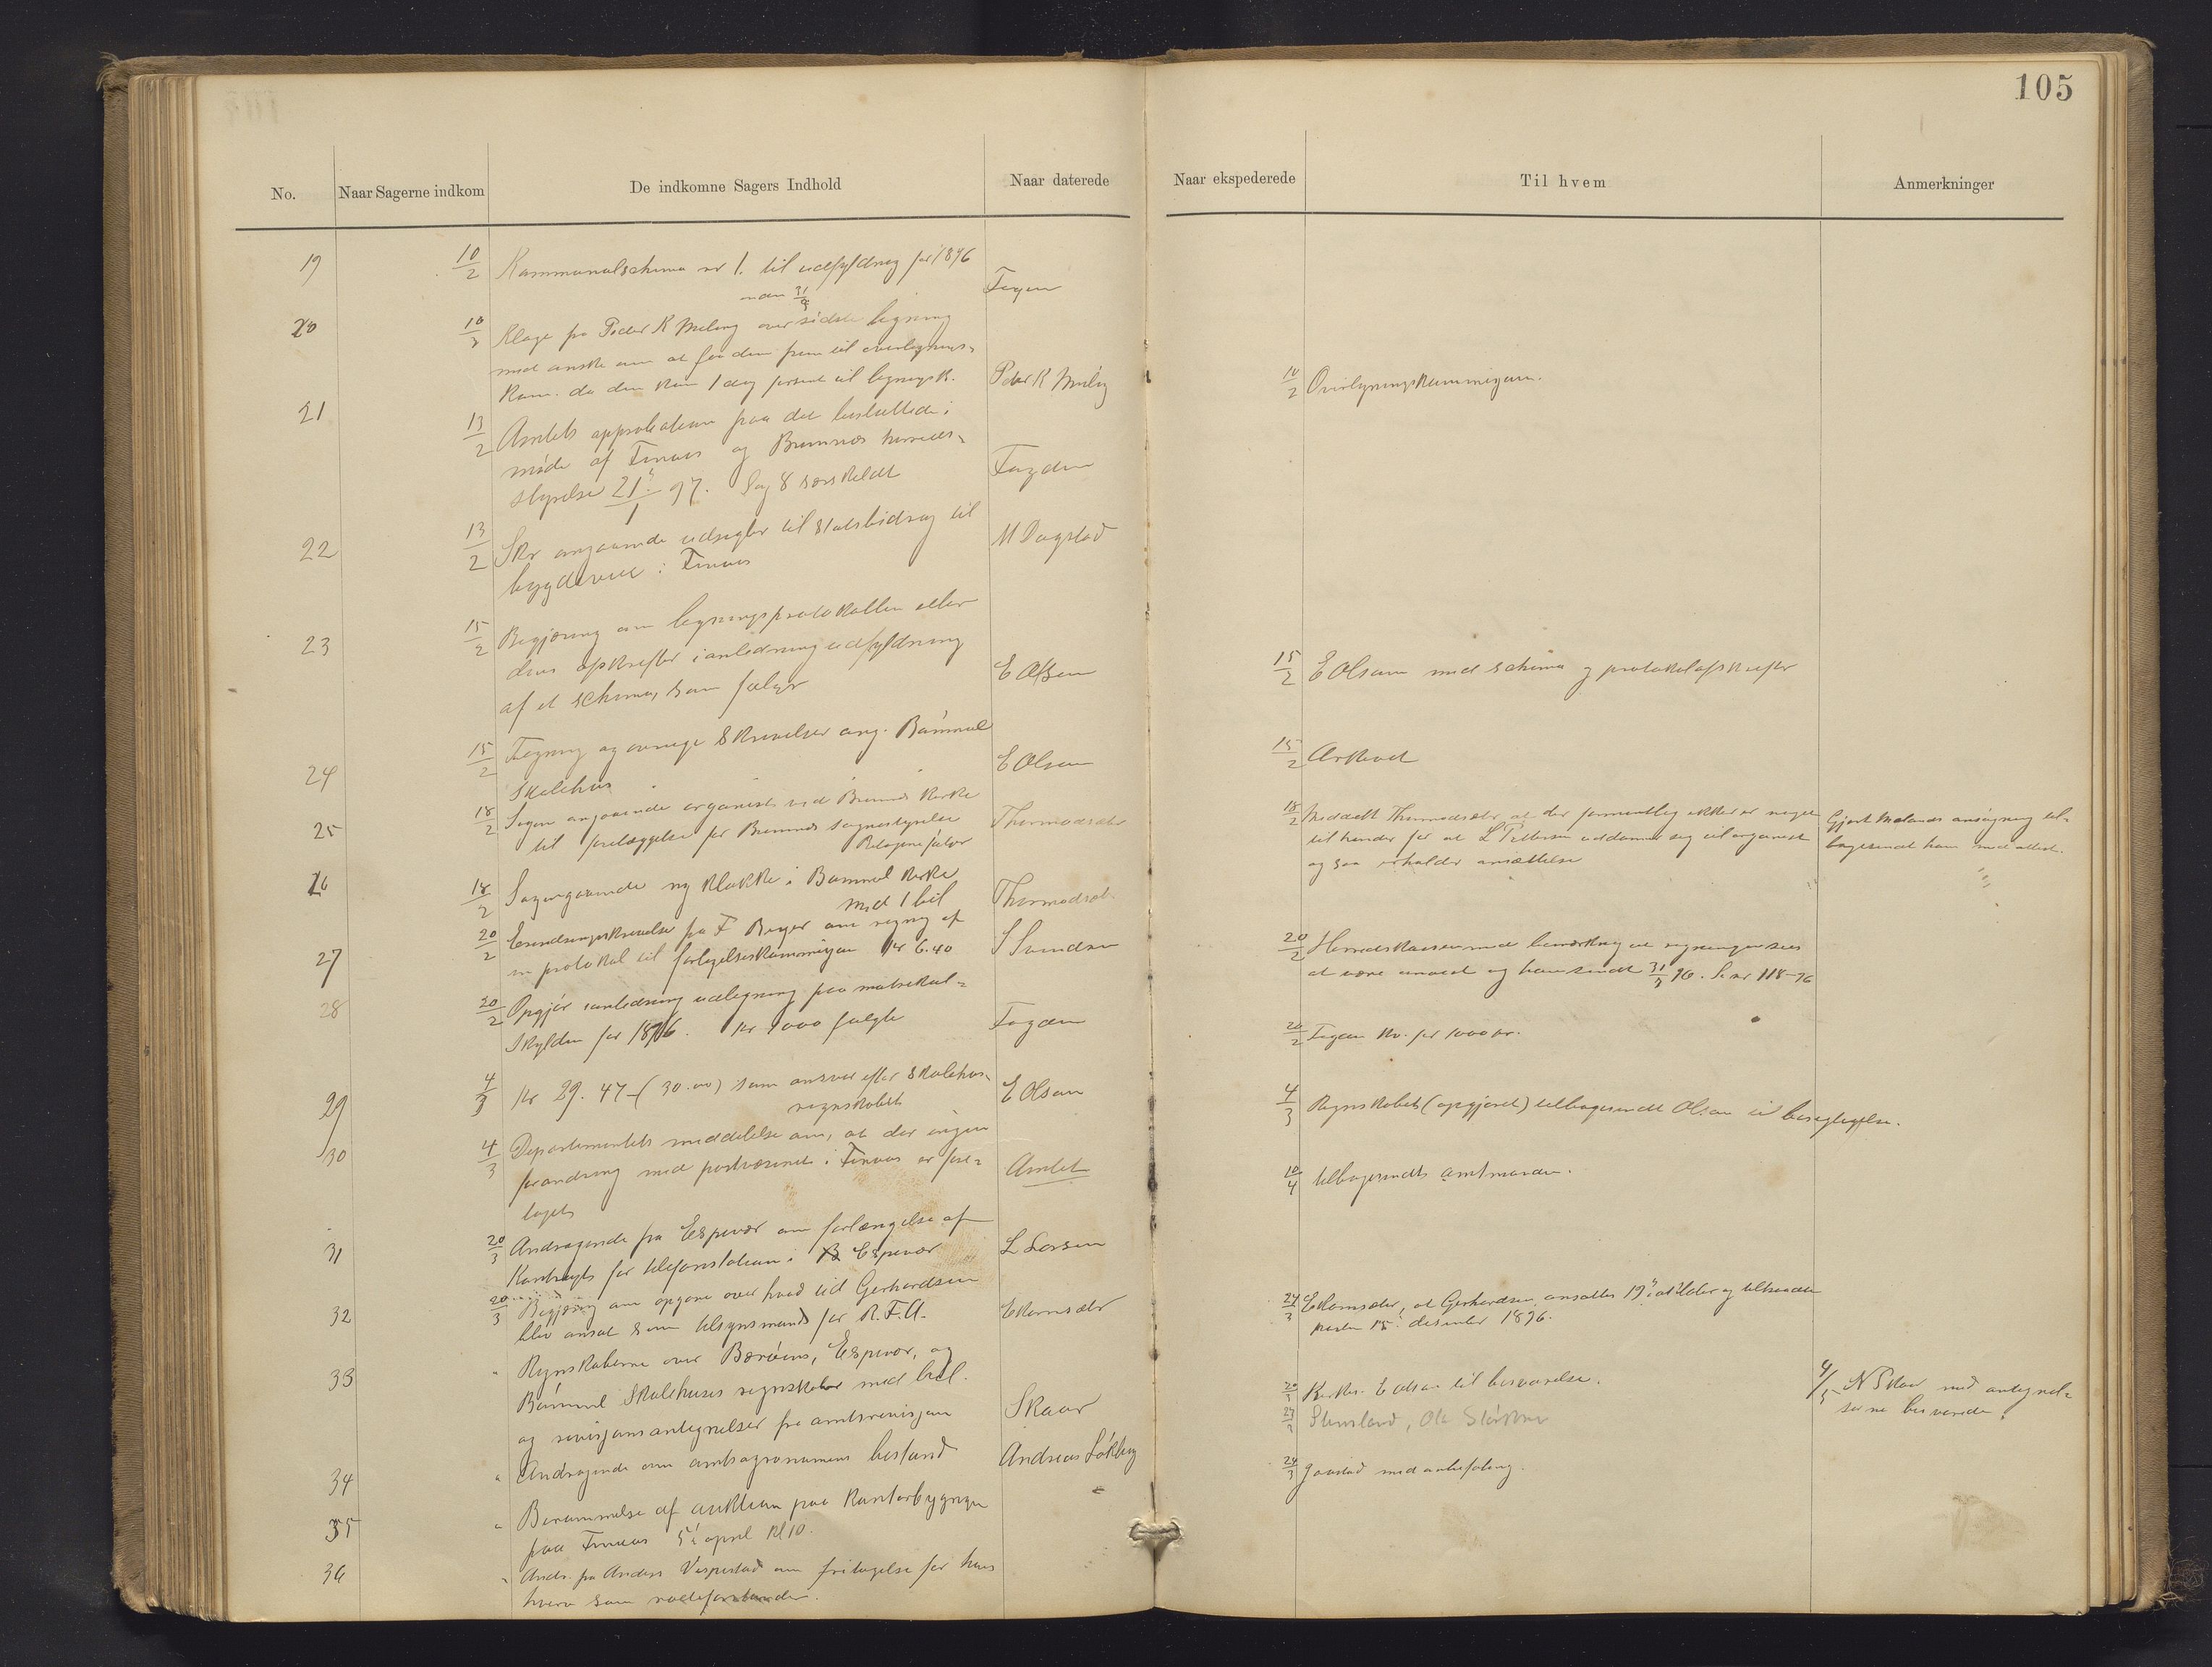 105
No. Naar Sagerne indkom De indkomne Sagers Indhold Naar daterede Naar ekspederede Til hvem Anmerkninger
19 10/2 Kommunalschema nr 1. til udfyldning for 1896
Fogen
20 10/2 Klage fra Peder K Meling over sidste ligning
med ønske om at faa den frem til overlignings-
kom. da den kom 1 dag forsent til ligningsk. Peder K Meling 10/2 Overligningskommisjonen.
21 13/2 Amtets approbation paa det besluttede i
møde af Finnaas og Bremnes herreds-
styrelse 21/1 97. Sag 8 særskeldt Fogden
22 13/2 Skr angaaende udsigter til statsbidrag til
bygdeveie i Finnaas M Dagstad
23 15/2 Begjæring om ligningsprotokollen eller
dens afskrifter i anledning udfyldning
af et schema, som følger E Olsen 15/2 E Olsen med schema og protokolafskrifter
24 15/2 Tegning og øvrige skrivelser ang. Bømmel
skolehus E Olsen 15/2 Arkivet
25 18/2 Sagen angaaende organist ved Bremnes kirke
til forelæggelse for Bremnes sognestyrelse
Bilagene følger Thormodsæter
18/2 Meddelt Thormodsæter, at der formentlig ikke er noget
til hinder for at L Pettersen uddanner sig til organist
og saa erholder ansættelse
Gjert Mælands ansøgning til-
bagesendt ham med attest.
26 18/2 Sag angaaende ny klokke i Bømmel kirke
med 1 bil Thormodsæt.
27 20/2 Erindringsskrivelse fra F Beyer om regning af
en protokol til forligelseskommisjonen kr 6.40 S Svendsen
20/2 Herredskasseren med bemærkning at regningen sees
at være anvist og ham sendt 31/7 96. Se nr 118-96
28 20/2 Opgjør i anledning udligning paa matrikul-
skylden for 1896. kr 1000 fulgte Fogden 20/2 Fogden kv. for 1000 kr.
29 4/3 kr 29.47 (30.00) som ansvar efter skolehus-
regnskabet E Olsen 4/3 Regnskabet (opgjøret) tilbagesendt Olsen til besigtigelse.
30 4/3 Departementets meddelelse om, at der ingen
forandring med postvæsenet i Finnaas er fore-
taget Amtet 10/4 tilbagesendt amtmanden.
31 20/3 Andragende fra Espevær om forlængelse af
Kontragts for telefonstation i Espevær L Larsen
32 20/3 Begjæring om opgave over hvad tid Gerhardsen
blev ansat som tilsynsmand for R.F.A. E Ramsæter
24/3 E Ramsæter, at Gerhardsen ansattes 19 oktober og tiltraadte
posten 15. desember 1896.
33 " Regnskaberne over Børøens, Espevær, og
Bømmel skolehuses regnskaber med bil.
og revisjonsantegnelser fra amtsrevisjonen Skaar
20/3 Kirkes. E Olsen til besvarelse.
27/3 Stensland, Ole Størkersen
4/5 N Skaar med antegnel-
serne besvarede.
34 " Andragende om amtsagronomens bistand Andreas Løkling 24/3 Gaastad med anbefaling.
35 " Berammelse af auktion paa kontorbygningen
paa Finnaas 5 april kl 10.
36 " Andr. fra Anders Vespestad om fritagelse for hans
hverv som rodeforstander.